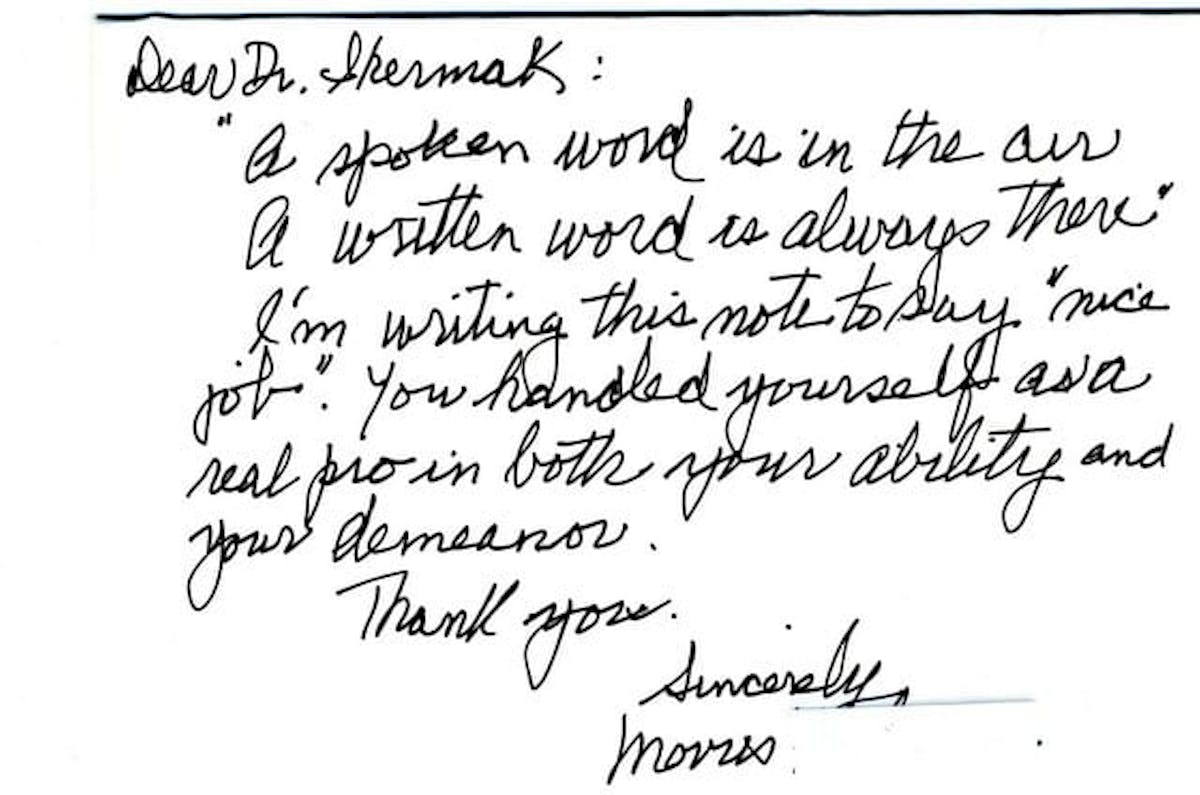 Dear Dr. Ikermak:
"A spoken word is in the air
A written word is always there"
I'm writing this note to say "nice
job". You handled yourself as a
real pro in both your ability and
your demeanor.
Thank you.
Sincerely,
Morris